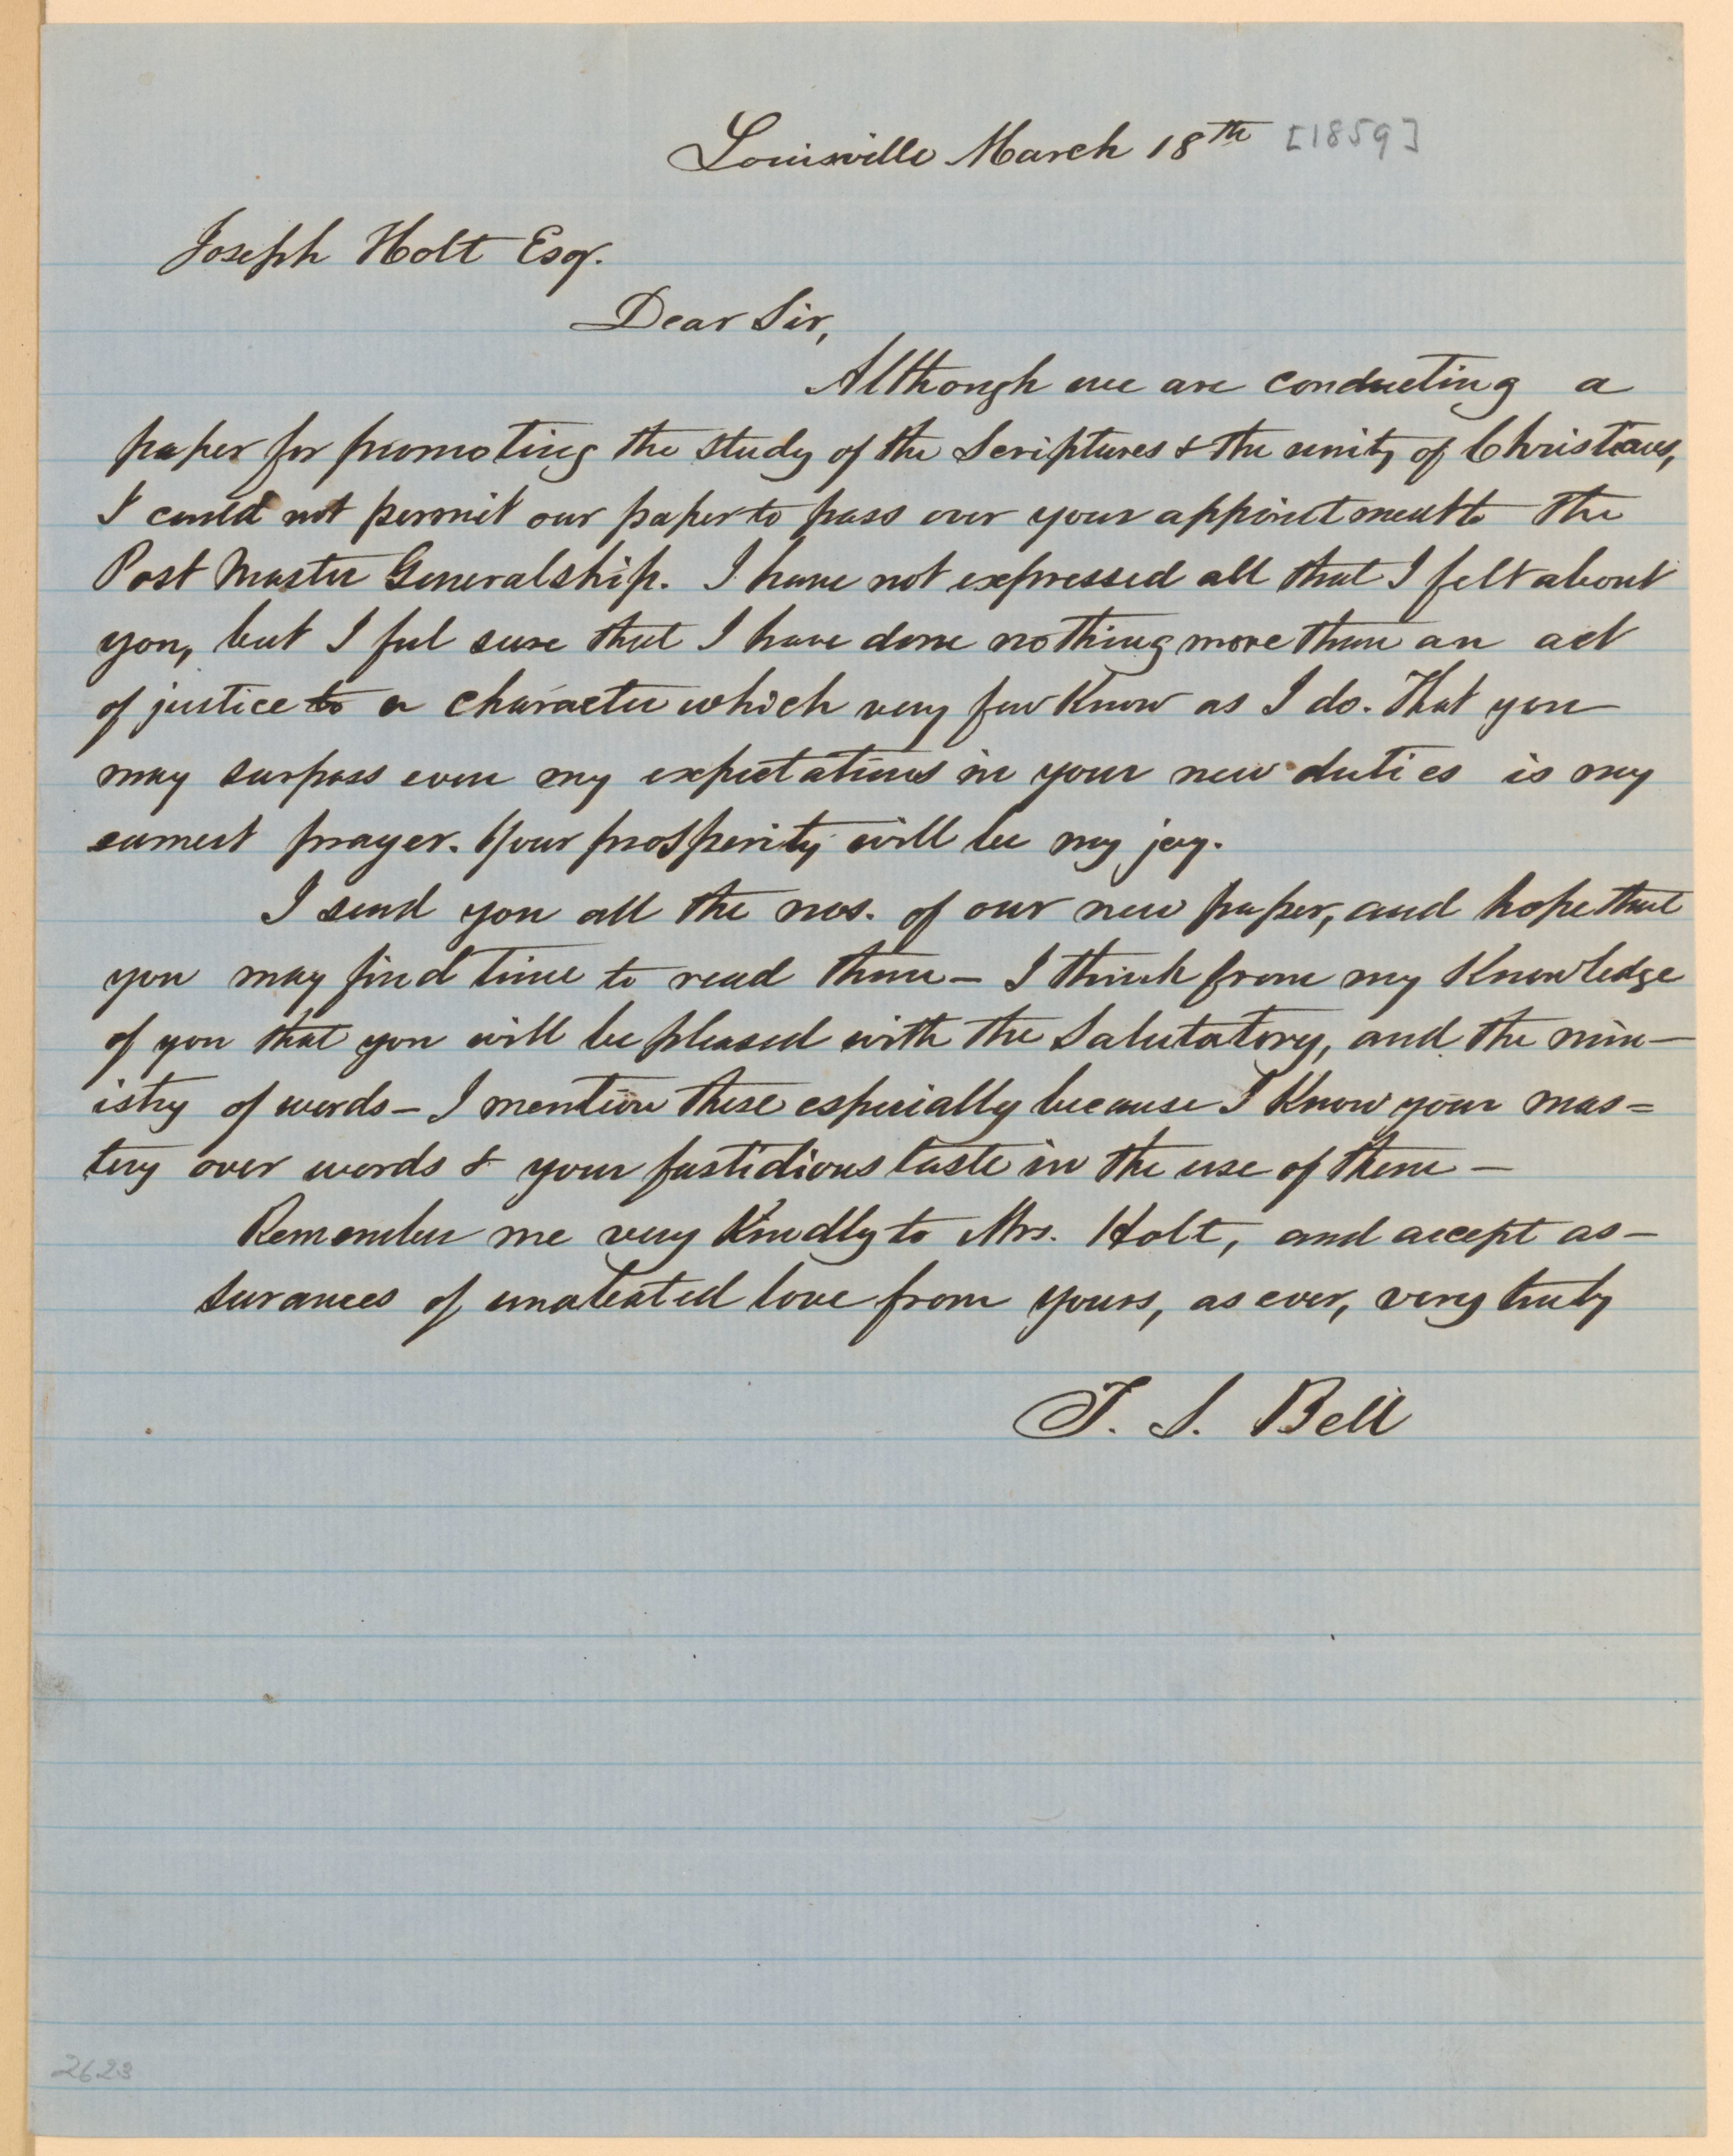 Louisville March 18th [1859]
Joseph Holt Esqr.
Dear Sir,
Although we are conducting a
paper for promoting the study of the Scriptures & the unity of Christians,
I could not permit our paper to pass over your appointment to the
Post Master Generalship. I have not expressed all that I felt about
you, but I feel sure that I have done nothing more than an act
of justice to a character which very few know as I do. That you
may surpass even my expectations in your new duties is my
earnest prayer. Your prosperity will be my joy.
I send you all the nos. of our new paper, and hope that
you may find time to read them – I think from my Knowledge
of you that you will be pleased with the Salutatory, and the min–
istry of words – I mention these especially because I Know your mas=
tery over words & your fastidious taste in the use of them –
Remember me very Kindly to Mrs. Holt, and accept as–
surances of unabated love from yours, as ever, very truly
T. S. Bell
2623